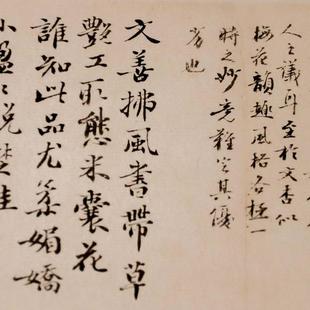 人之議耳至於文杏似
梅花韻趣風格各極一
時之妙竟難定其優
劣也
文善拂風書帶草
艷工取態米囊花
誰知此品尤兼媚嬌
小盈盈說楚娃